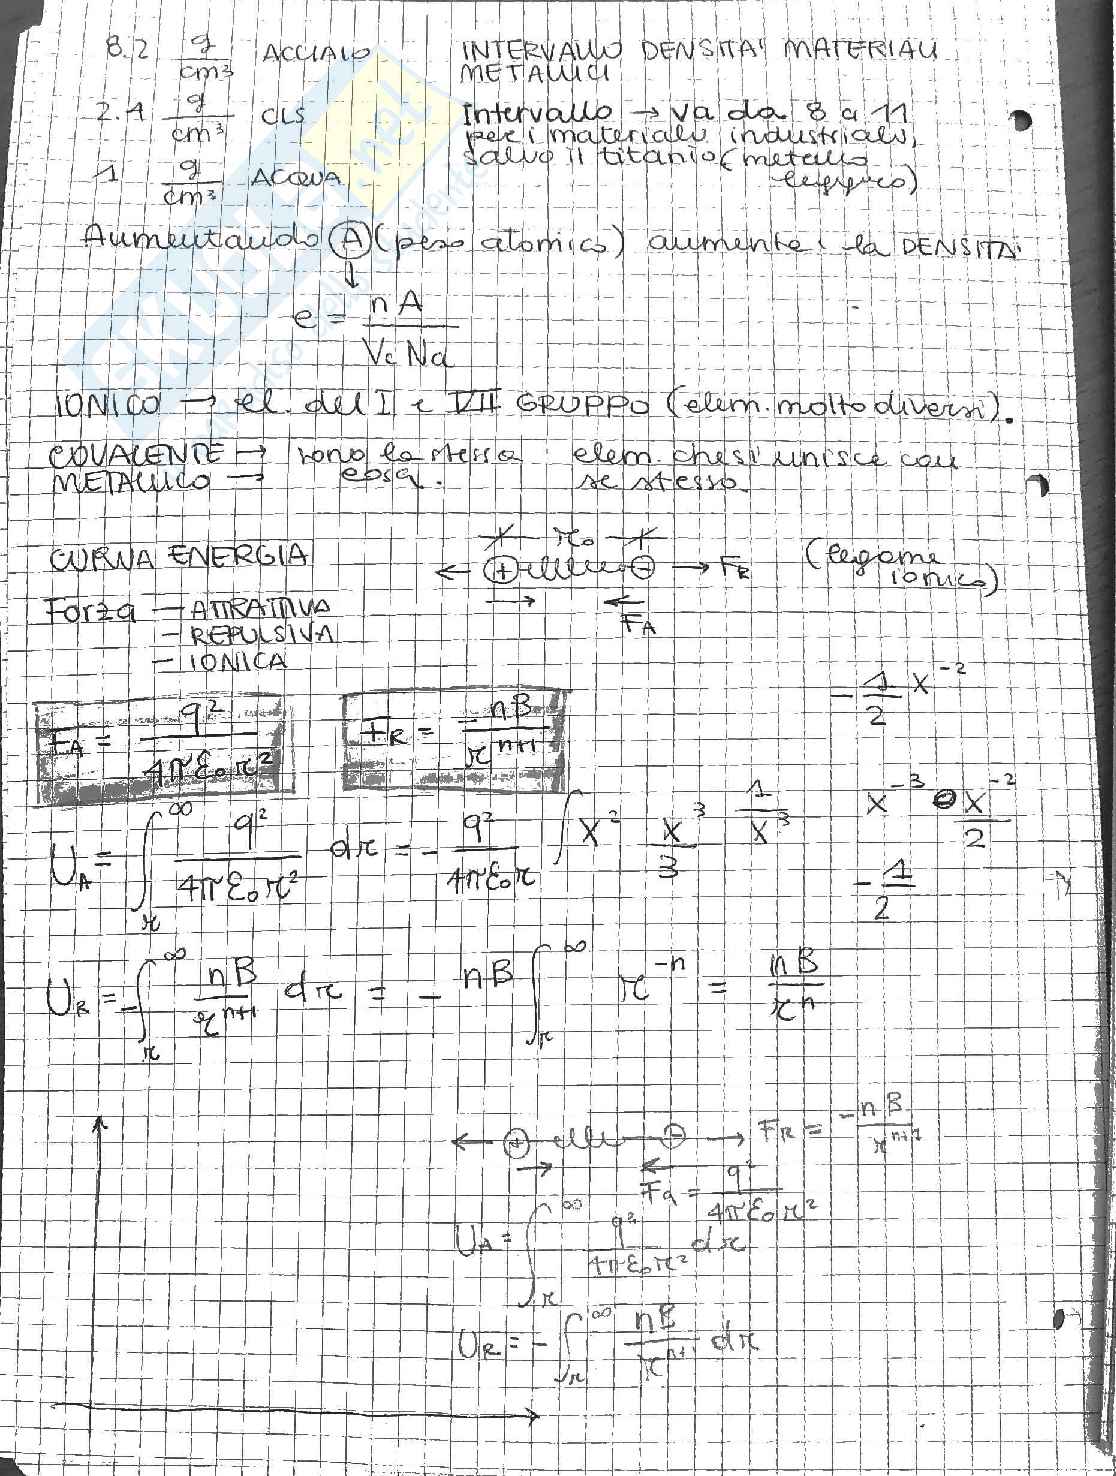 8.2 g/cm³ ACCIAIO
INTERVALLO DENSITA' MATERIALI
METALLICI
2.4 g/cm³ CLS
Intervallo → va da 8 a 11
per i materiali industriali,
salvo il titanio (metallo
leggero)
1 g/cm³ ACQUA
Aumentando A (peso atomico) aumenta la DENSITA'
e = nA / Vc Na
IONICO → el. del I e VII GRUPPO (elem. molto diversi).
COVALENTE → sono la stessa elem. che si unisce con
METALLICO → cosa. se stesso.
CURVA ENERGIA
r₀
+ - → FR (legame
ionico)
FA
Forza - ATTRATTIVA
- REPULSIVA
- IONICA
-1/2 x⁻²
FA = q² / 4πε₀r²
FR = -nB / r^(n+1)
UA = ∫_r^∞ q² / 4πε₀r² dr = - q² / 4πε₀r
∫x² x³/3 1/x³ x⁻³ x⁻²/2
-1/2
UR = -∫_r^∞ nB / r^(n+1) dr = - nB ∫_r^∞ r⁻ⁿ = nB / rⁿ
+ - → FR = -nB / r^(n+1)
Fa = q² / 4πε₀r²
UA = ∫_r^∞ q² / 4πε₀r² dr
UR = -∫_r^∞ nB / r^(n+1) dr